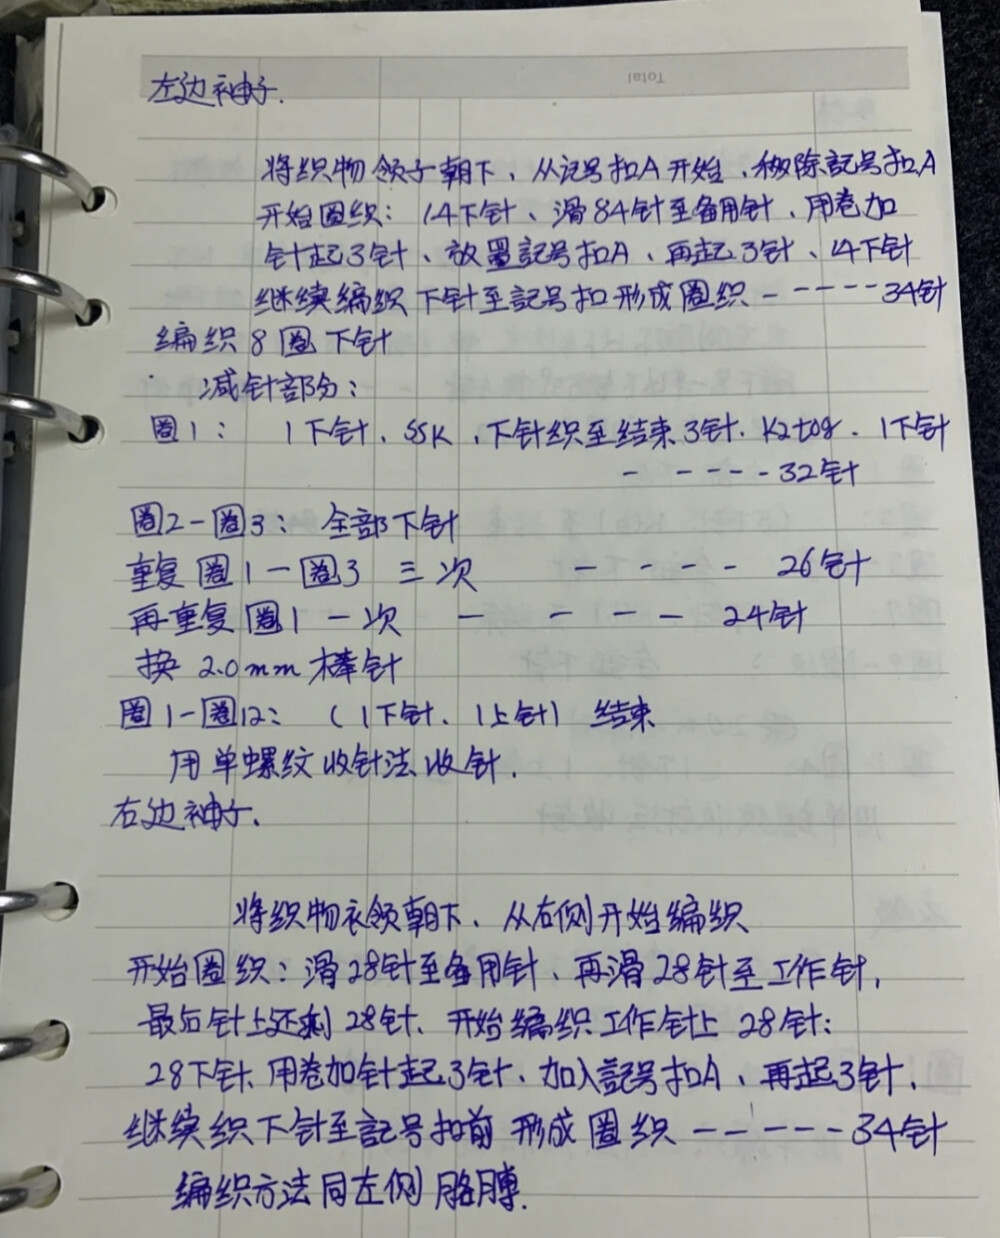 Total
左边袖子.
将织物领子朝下、从记号扣A开始、移除記号扣A
开始圈织: 14下针、滑84针至备用针、用卷加
针起3针、放置記号扣A、再起3针、14下针
继续编织下针至記号扣形成圈织 - - - - - 34针
编织8圈下针
减针部分:
圈1: 1下针、SSK、下针织至结束3针、K2tog、1下针
- - - - - 32针
圈2-圈3: 全部下针
重复圈1-圈3 三次 - - - - 26针
再重复圈1一次 - - - - - 24针
换2.0mm棒针
圈1-圈12: (1下针、1上针) 结束
用单螺纹收针法收针.
右边袖子.
将织物衣领朝下、从右侧开始编织
开始圈织: 滑28针至备用针、再滑28针至工作针,
最后针上还剩28针、开始编织工作针上28针:
28下针、用卷加针起3针、加入記号扣A、再起3针,
继续织下针至記号扣前形成圈织 - - - - - 34针
编织方法同左侧胳膊.